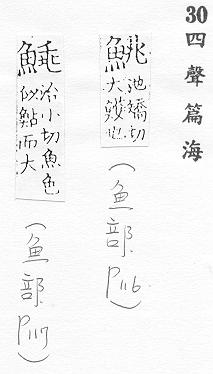 30 四聲篇海
鮡 池矯切
大鱯也
(鱼部 P116)
治小切魚色
似鮎而大
(鱼部 P117)